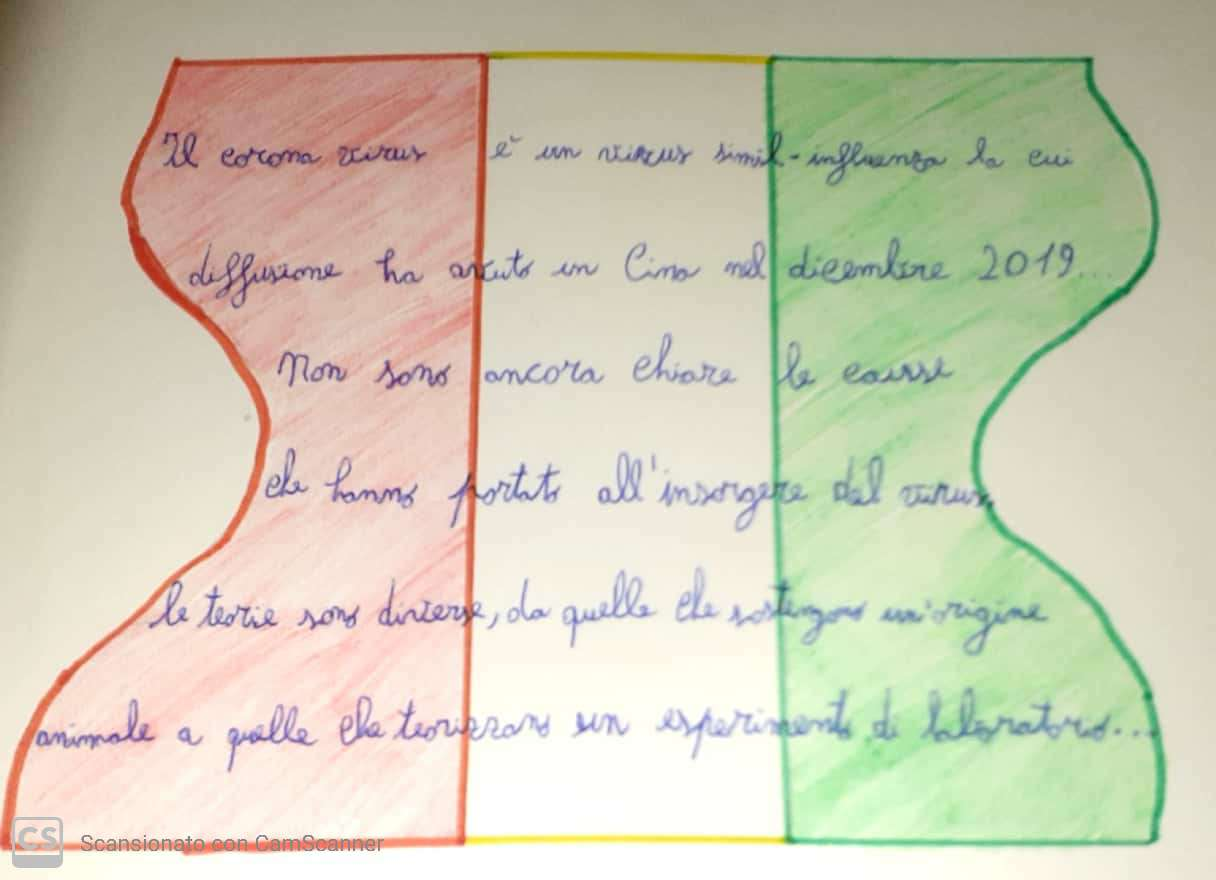 Il corona virus è un virus simil-influenza la cui
diffusione ha avuto in Cina nel dicembre 2019...
Non sono ancora chiare le cause
che hanno portato all'insorgere del virus,
le teorie sono diverse, da quelle che sostengono un'origine
animale a quelle che teorizzano un esperimento di laboratorio...
CS Scansionato con CamScanner